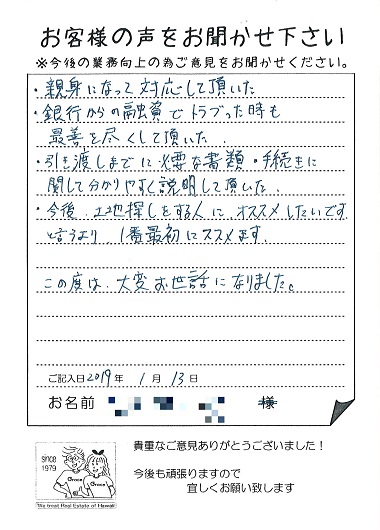 お客様の声をお聞かせ下さい
※今後の業務向上の為ご意見をお聞かせください。
・親身になって対応して頂いた
・銀行からの融資でトラブった時も
最善を尽くして頂いた
・引き渡しまでに必要な書類・手続きに
関して分かりやすく説明して頂いた。
・今後、土地探しをする人にオススメしたいです
と言うより、1番最初にススメます。
この度は、大変お世話になりました。
ご記入日 2019 年 1 月 13 日
お名前 様
since
1979
Grace
Grace
We treat Real Estate of Hawaii
貴重なご意見ありがとうございました！
今後も頑張りますので
宜しくお願い致します